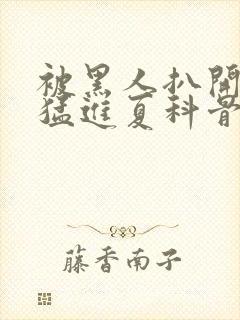 被黑人扒開
猛進夏科骨
藤香南子